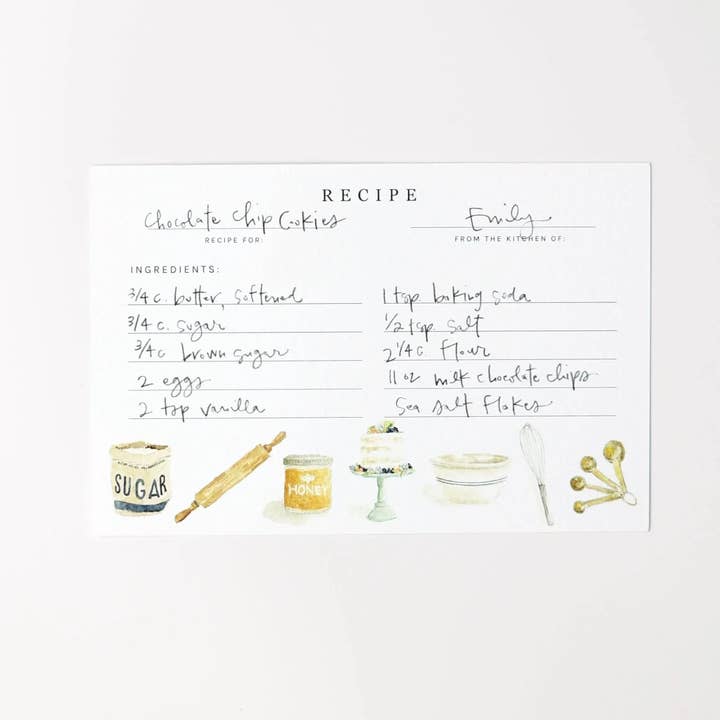 RECIPE
Chocolate Chip Cookies
Emily
RECIPE FOR:
FROM THE KITCHEN OF:
INGREDIENTS:
3/4 c. butter, softened
3/4 c. sugar
3/4 c brown sugar
2 eggs
2 tsp vanilla
1 tsp. baking soda
1/2 tsp. salt
2 1/4 c flour
11 oz milk chocolate chips
Sea salt flakes
SUGAR
HONEY